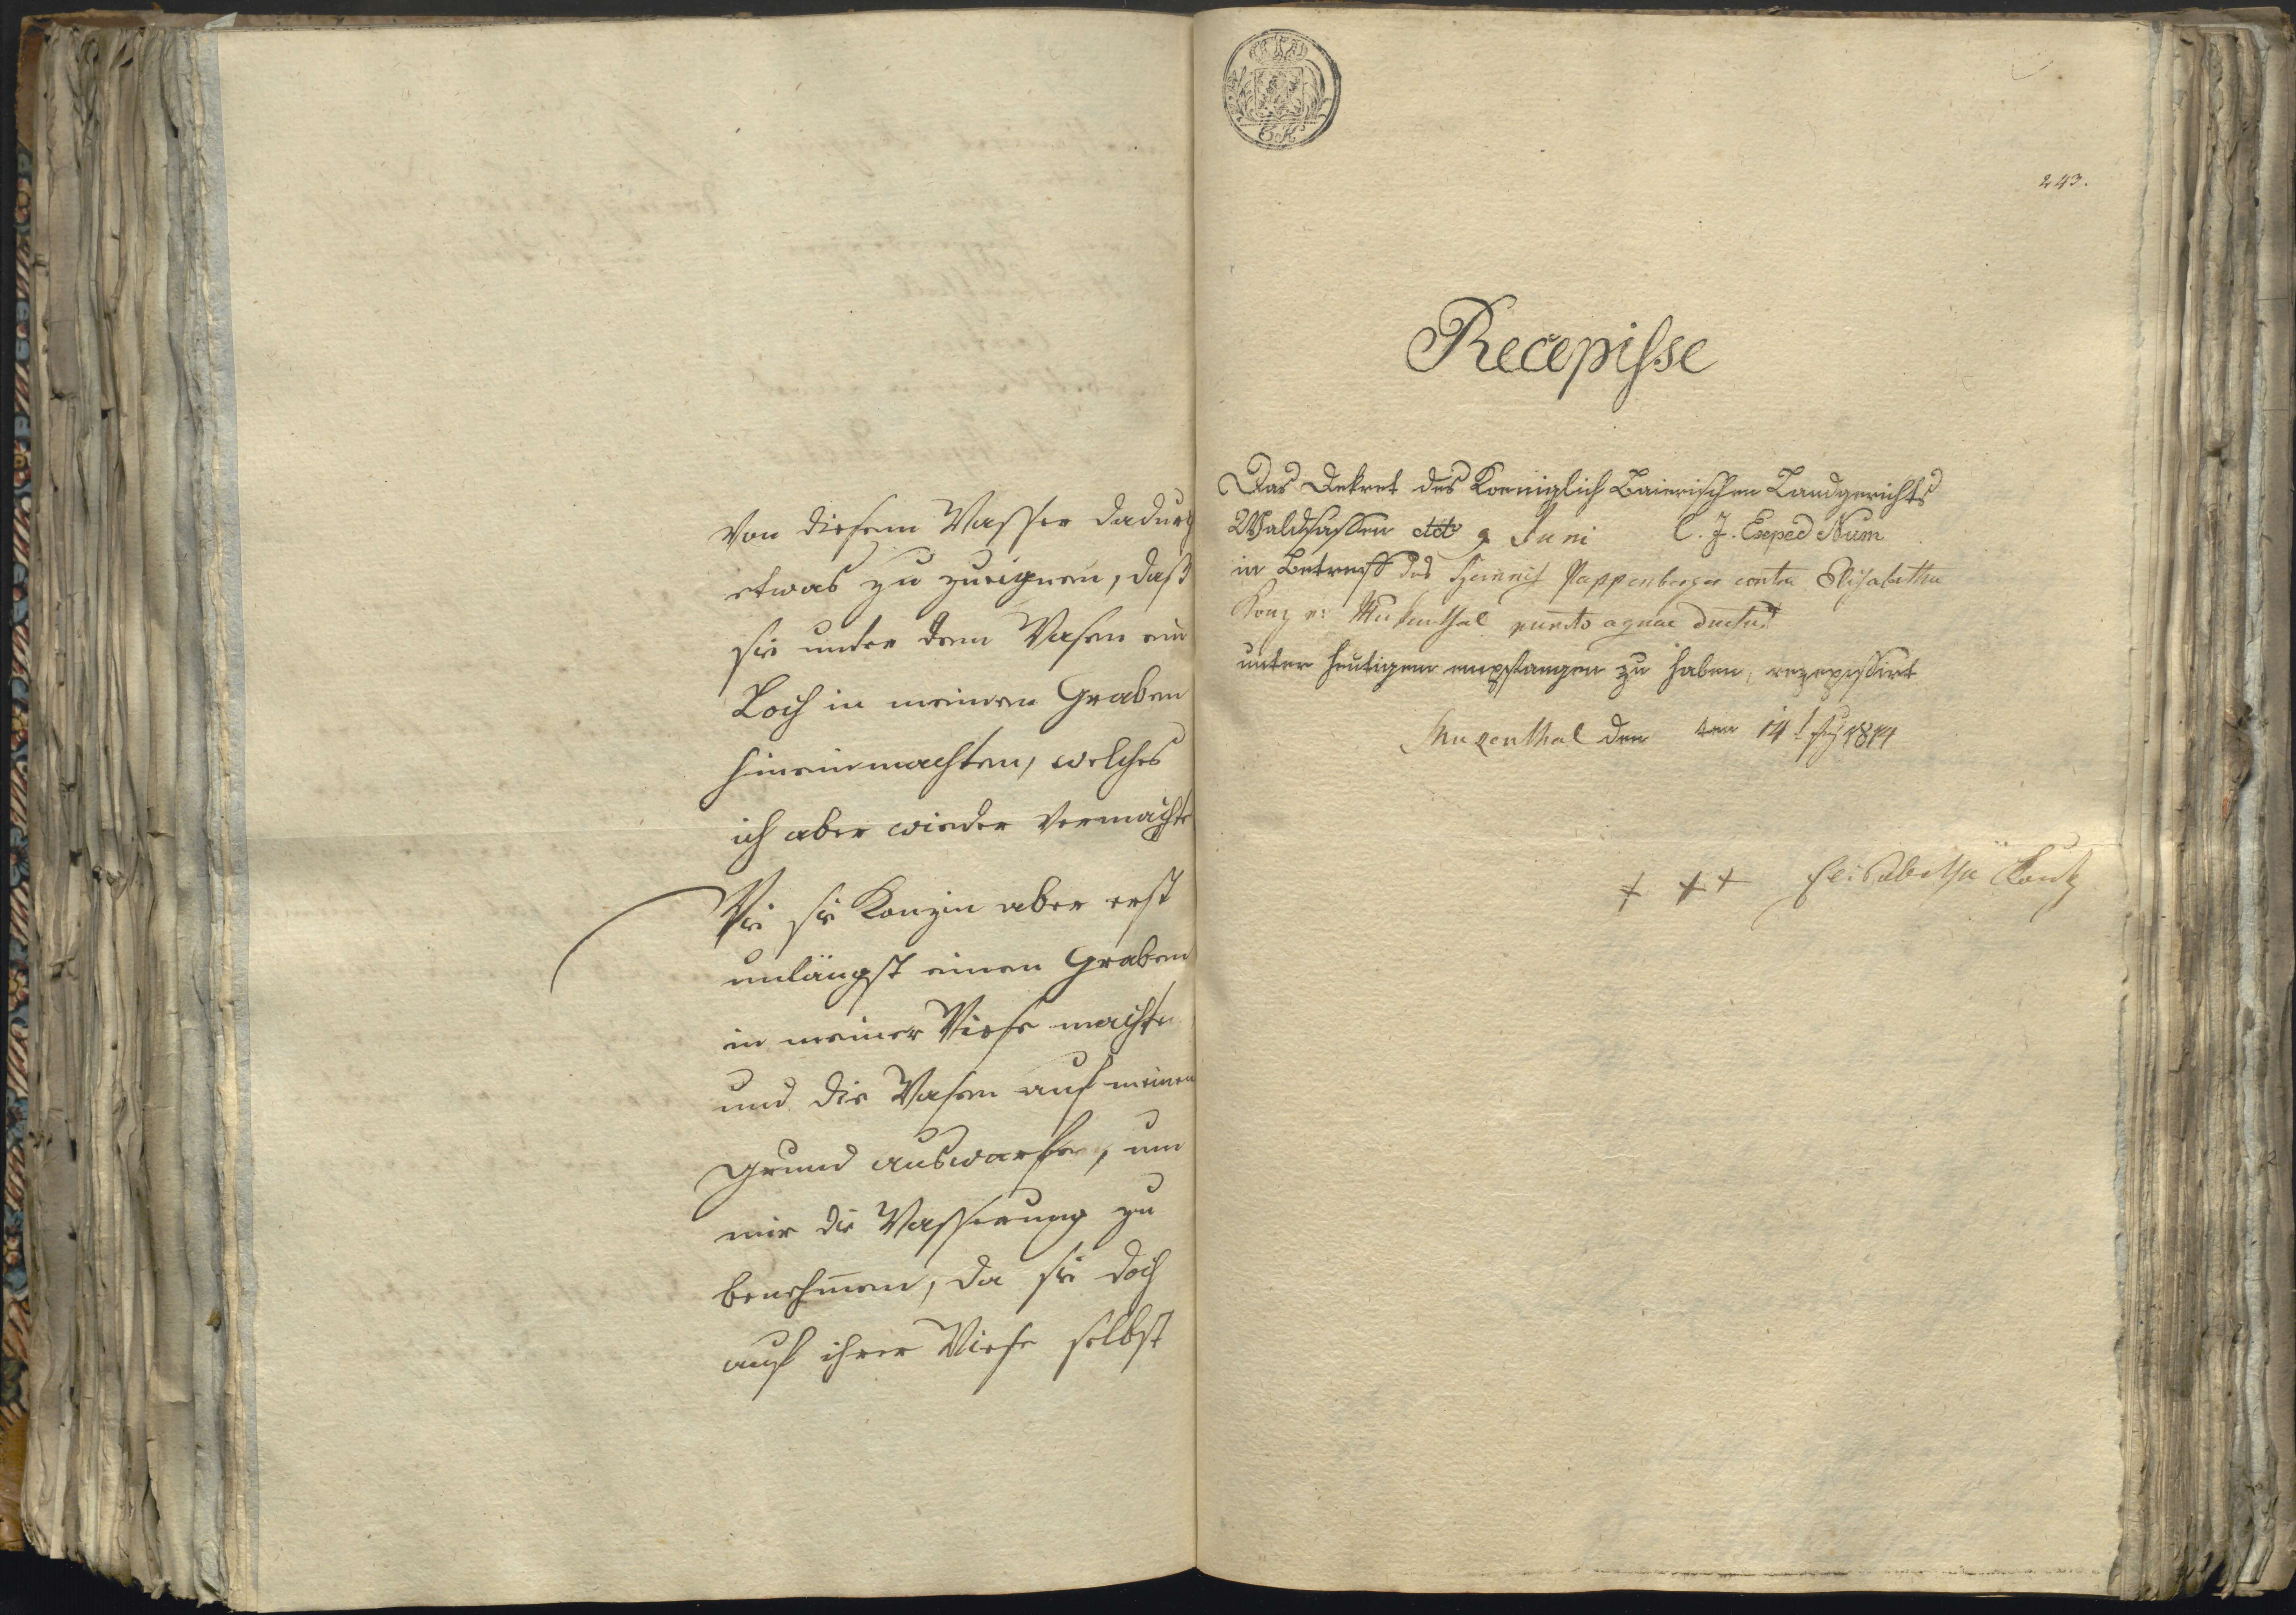 von diesem Wasser dadurch
etwas zu zueignen, daß
sie unter dem Wasen ein
Loch in meinen Graben
hineinmachten, welches
ich aber wieder vermachte
Wie sie Konzin aber erst
unlängst einen Graben
in meiner Wiese machte
und die Wasen auf meinen
Grund auswarfen, um
mir die Wasserung zu
benehmen, da sie doch
auf ihrer Wiese selbst
243.
Recepisse
Das Dekret des Koeniglich Baierischen Landgerichts
Waldsassen dd 9 Juni C. J. Exped Num
in Betreff des Heinrich Pappenberger contra Elisabetha
Konz v: Mukenthal puncto aquae ductus
unter heutigem empfangen zu haben, rezepissirt
Mugenthal den ten 14 1814
+ + + Elisabetha Kontz